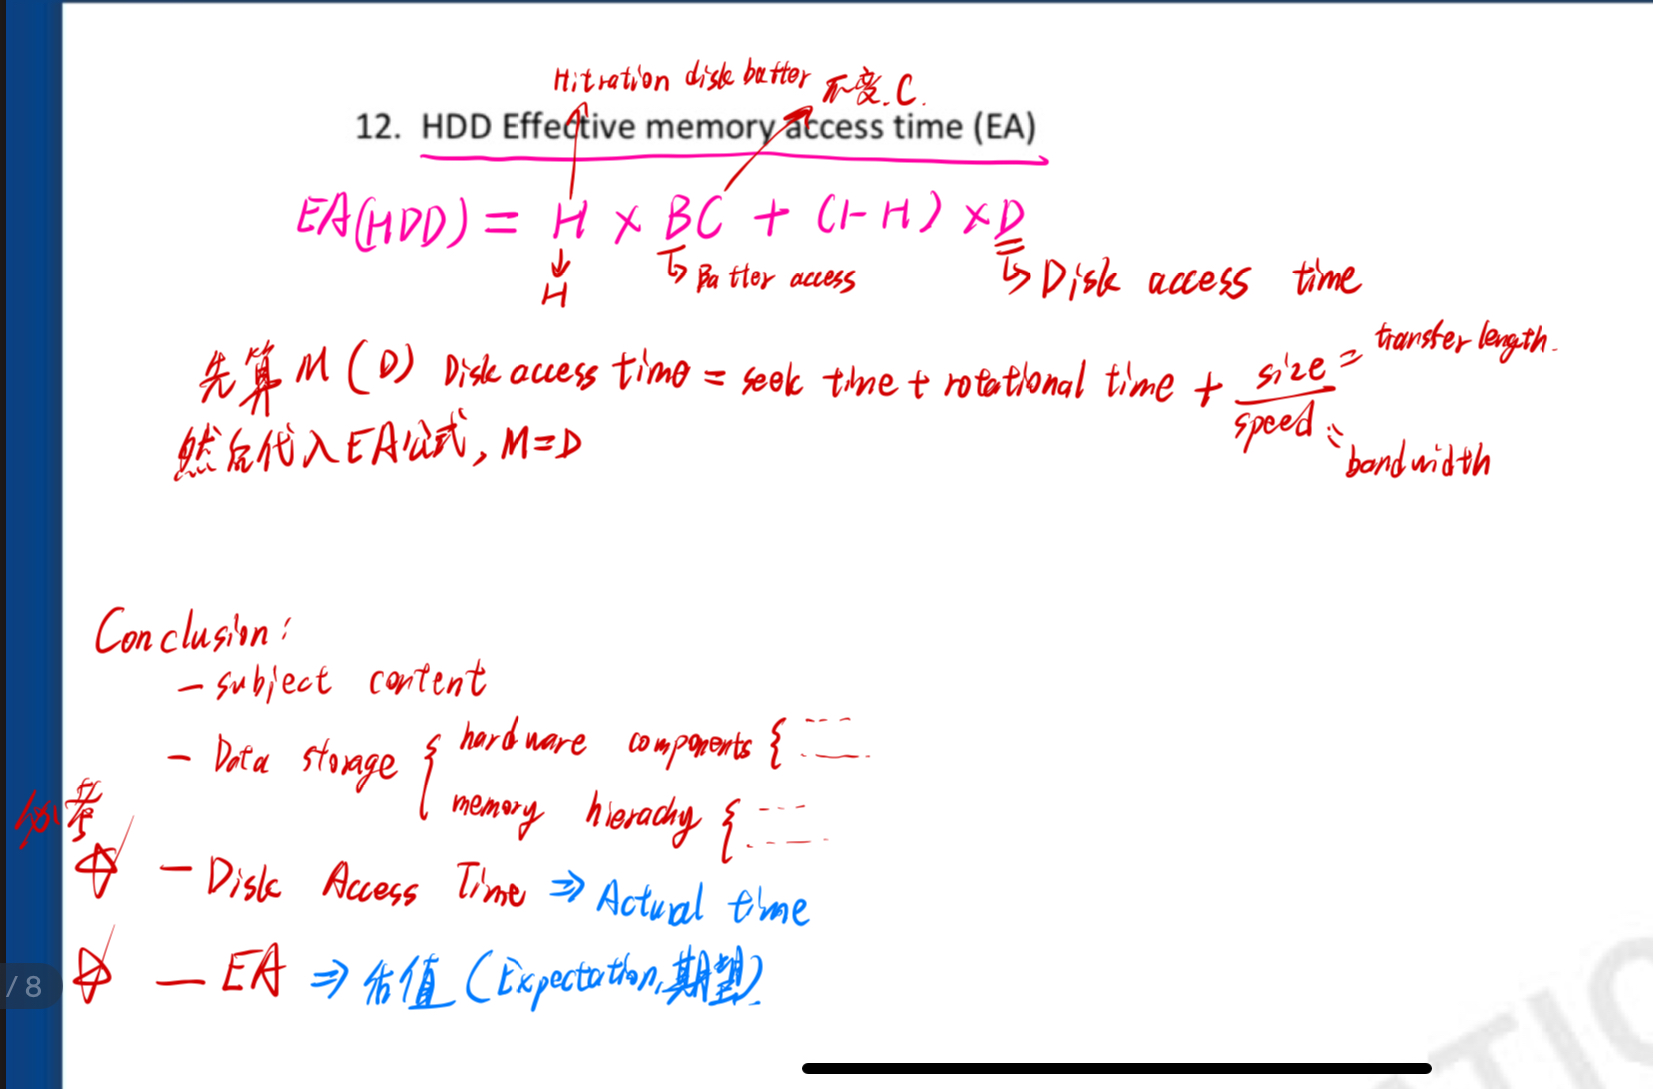 Hitration disk batter 不变.C.
12. HDD Effective memory access time (EA)
EA(HDD) = H × BC + (1-H) × D
H
Batter access
Disk access time
先算 M (D) Disk access time = seek time + rotational time + size / speed
= transfer length.
= bandwidth
然后代入EA公式, M=D
Conclusion:
- subject content
- Data storage { hardware components {
memory hierachy {
必考
- Disk Access Time ⇒ Actual time
- EA ⇒ 估值 (Expectation,期望)
/ 8
TIO